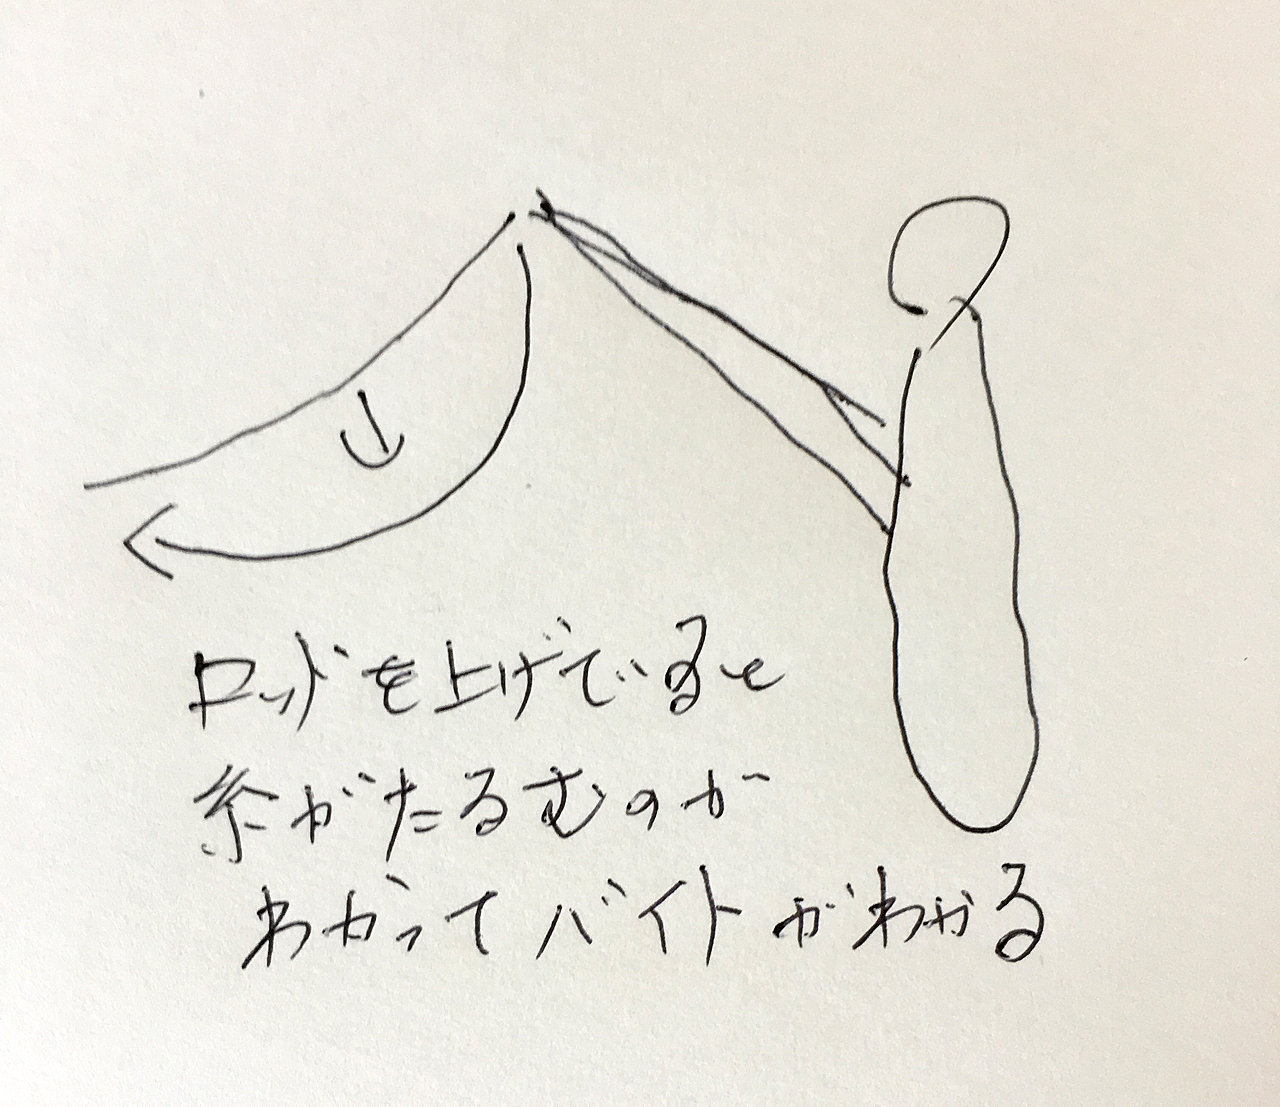 ロッドを上げていると
糸がたるむのが
わかってバイトがわかる